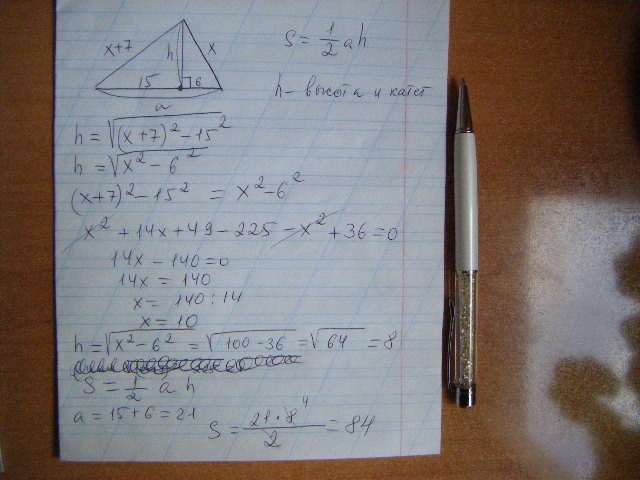 x+7
h
x
15
6
a
S = 1/2 ah
h - высота и катет
h = √((x+7)² - 15²)
h = √(x² - 6²)
(x+7)² - 15² = x² - 6²
x² + 14x + 49 - 225 - x² + 36 = 0
14x - 140 = 0
14x = 140
x = 140 : 14
x = 10
h = √(x² - 6²) = √(100 - 36) = √64 = 8
S = 1/2 a h
a = 15 + 6 = 21
S = 21 · 8 4 / 2 = 84